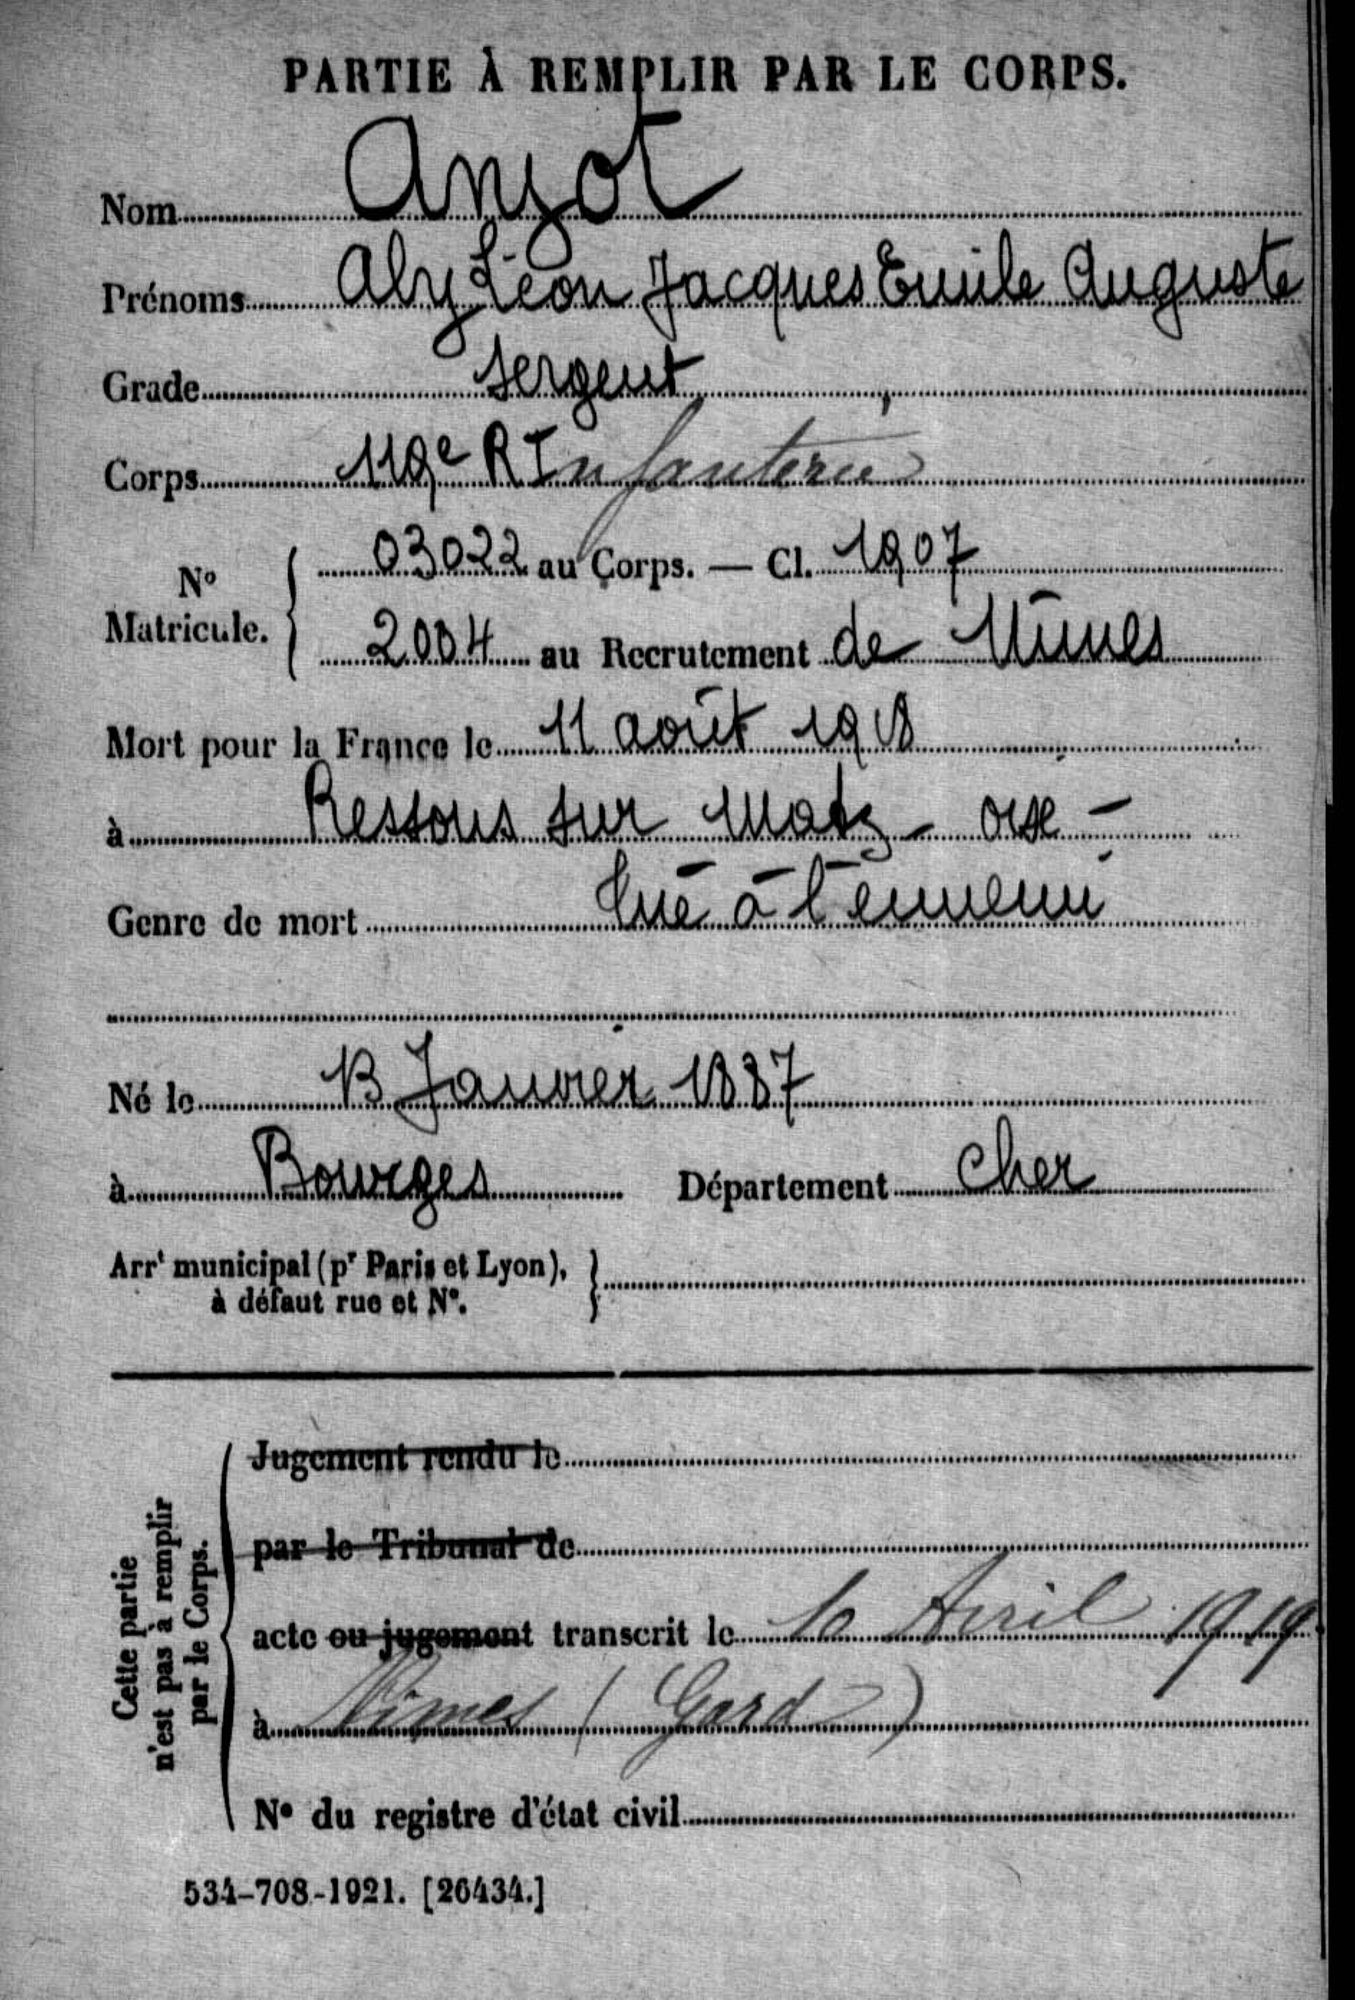 PARTIE À REMPLIR PAR LE CORPS.
Nom Anjot
Prénoms Aly Léon Jacques Emile Auguste
Grade Sergent
Corps 119e R Infanterie
N° Matricule. 03022 au Corps. — Cl. 1907
2004 au Recrutement de Nîmes
Mort pour la France le 11 août 1918
à Ressons sur Matz - oise -
Genre de mort tué à l'ennemi
Né le 13 Janvier 1887
à Bourges Département Cher
Arrt municipal (pr Paris et Lyon),
à défaut rue et N°.
Cette partie n'est pas à remplir par le Corps.
Jugement rendu le
par le Tribunal de
acte ou jugement transcrit le 10 Avril 1919
à Nîmes (Gard)
N° du registre d'état civil
534-708-1921. [26434.]